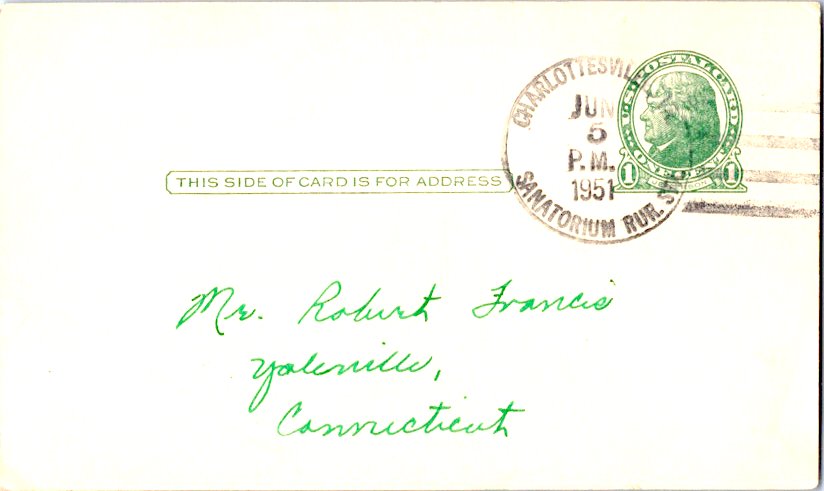 CHARLOTTESVIL
JUN
5
P.M.
1951
SANATORIUM RUR. S
U.S. POSTAL CARD
ONE CENT
1 1
THIS SIDE OF CARD IS FOR ADDRESS
Mr. Robert Francis
Yalesville,
Connecticut